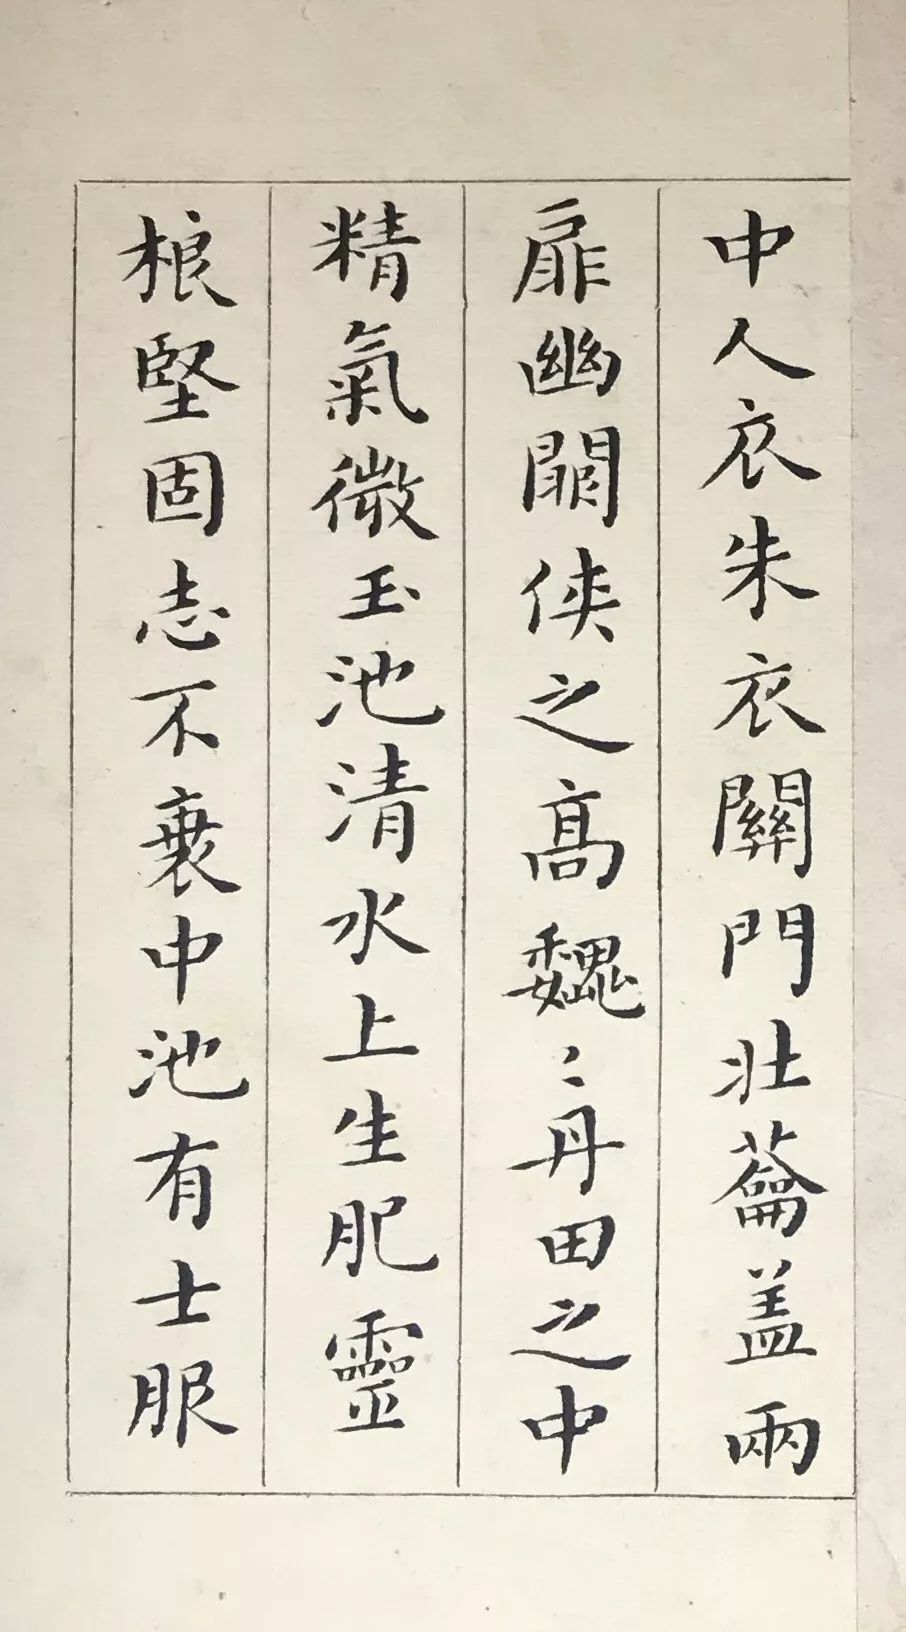 中人衣朱衣關門壯蘥盖兩
扉幽闗侠之高魏〻丹田之中
精氣微玉池清水上生肥靈
根堅固志不衰中池有士服